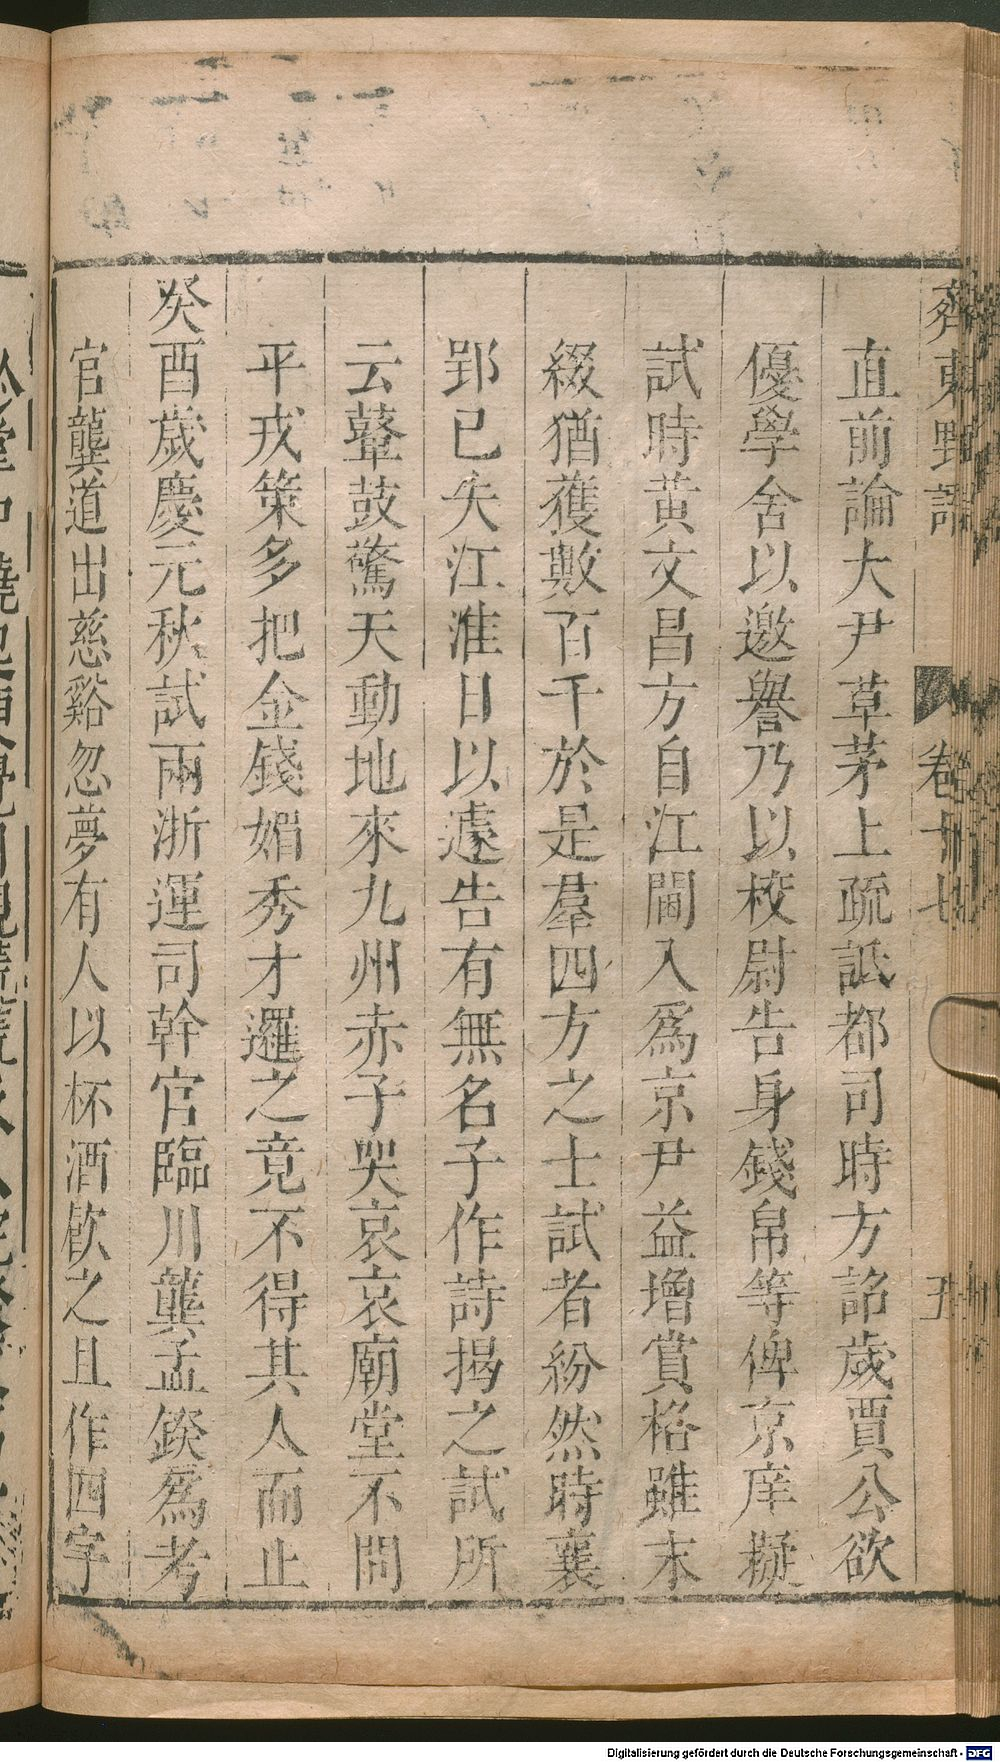 齊東野語 卷十七 五
直前論大尹草茅上疏詆都司時方詔歲賈公欲
優學舍以邀譽乃以校尉告身錢帛等俾京庠擬
試時黃文昌方自江閫入爲京尹益增賞格雖末
綴猶獲數百千於是羣四方之士試者紛然時襄
郢已失江淮日以遽告有無名子作詩揭之試所
云鼙鼓驚天動地來九州赤子哭哀哀廟堂不問
平戎策多把金錢媚秀才邏之竟不得其人而止
癸酉歲慶元秋試兩浙運司幹官臨川龔孟鍨爲考
官龔道出慈谿忽夢有人以杯酒飲之且作四字
Digitalisierung gefördert durch die Deutsche Forschungsgemeinschaft - DFG